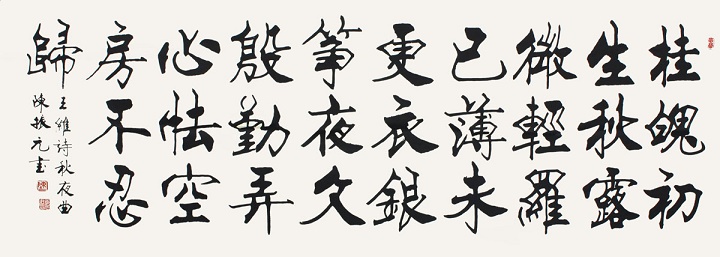 桂魄初
生秋露
微輕羅
已薄未
更衣銀
筝夜久
殷勤弄
心怯空
房不忍
歸
王維詩秋夜曲
陳振元書